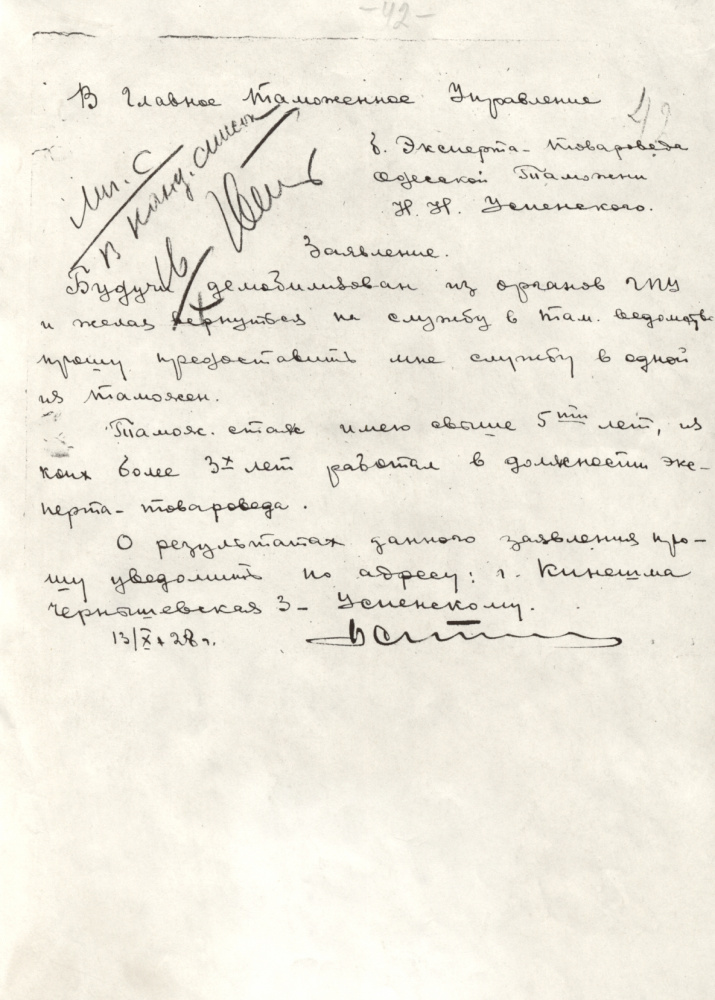 -42-
В Главное Таможенное Управление
42
б. Эксперта-товароведа
Одесской Таможни
Н. Н. Успенского.
В канд. список
Заявление.
Будучи демобилизован из органов ГПУ
и желая вернуться на службу в там. ведомств
прошу предоставить мне службу в одной
из таможен.
Тамож. стаж имею свыше 5ти лет, из
коих более 3х лет работал в должности экс-
перта-товароведа.
О результатах данного заявления про-
шу уведомить по адресу: г. Кинешма
Чернышевская 3- Успенскому.
13/X 28 г.